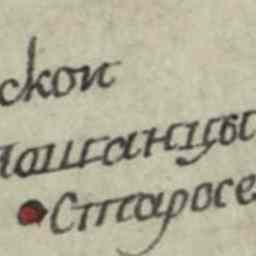 ской
лошганцы
Старосе